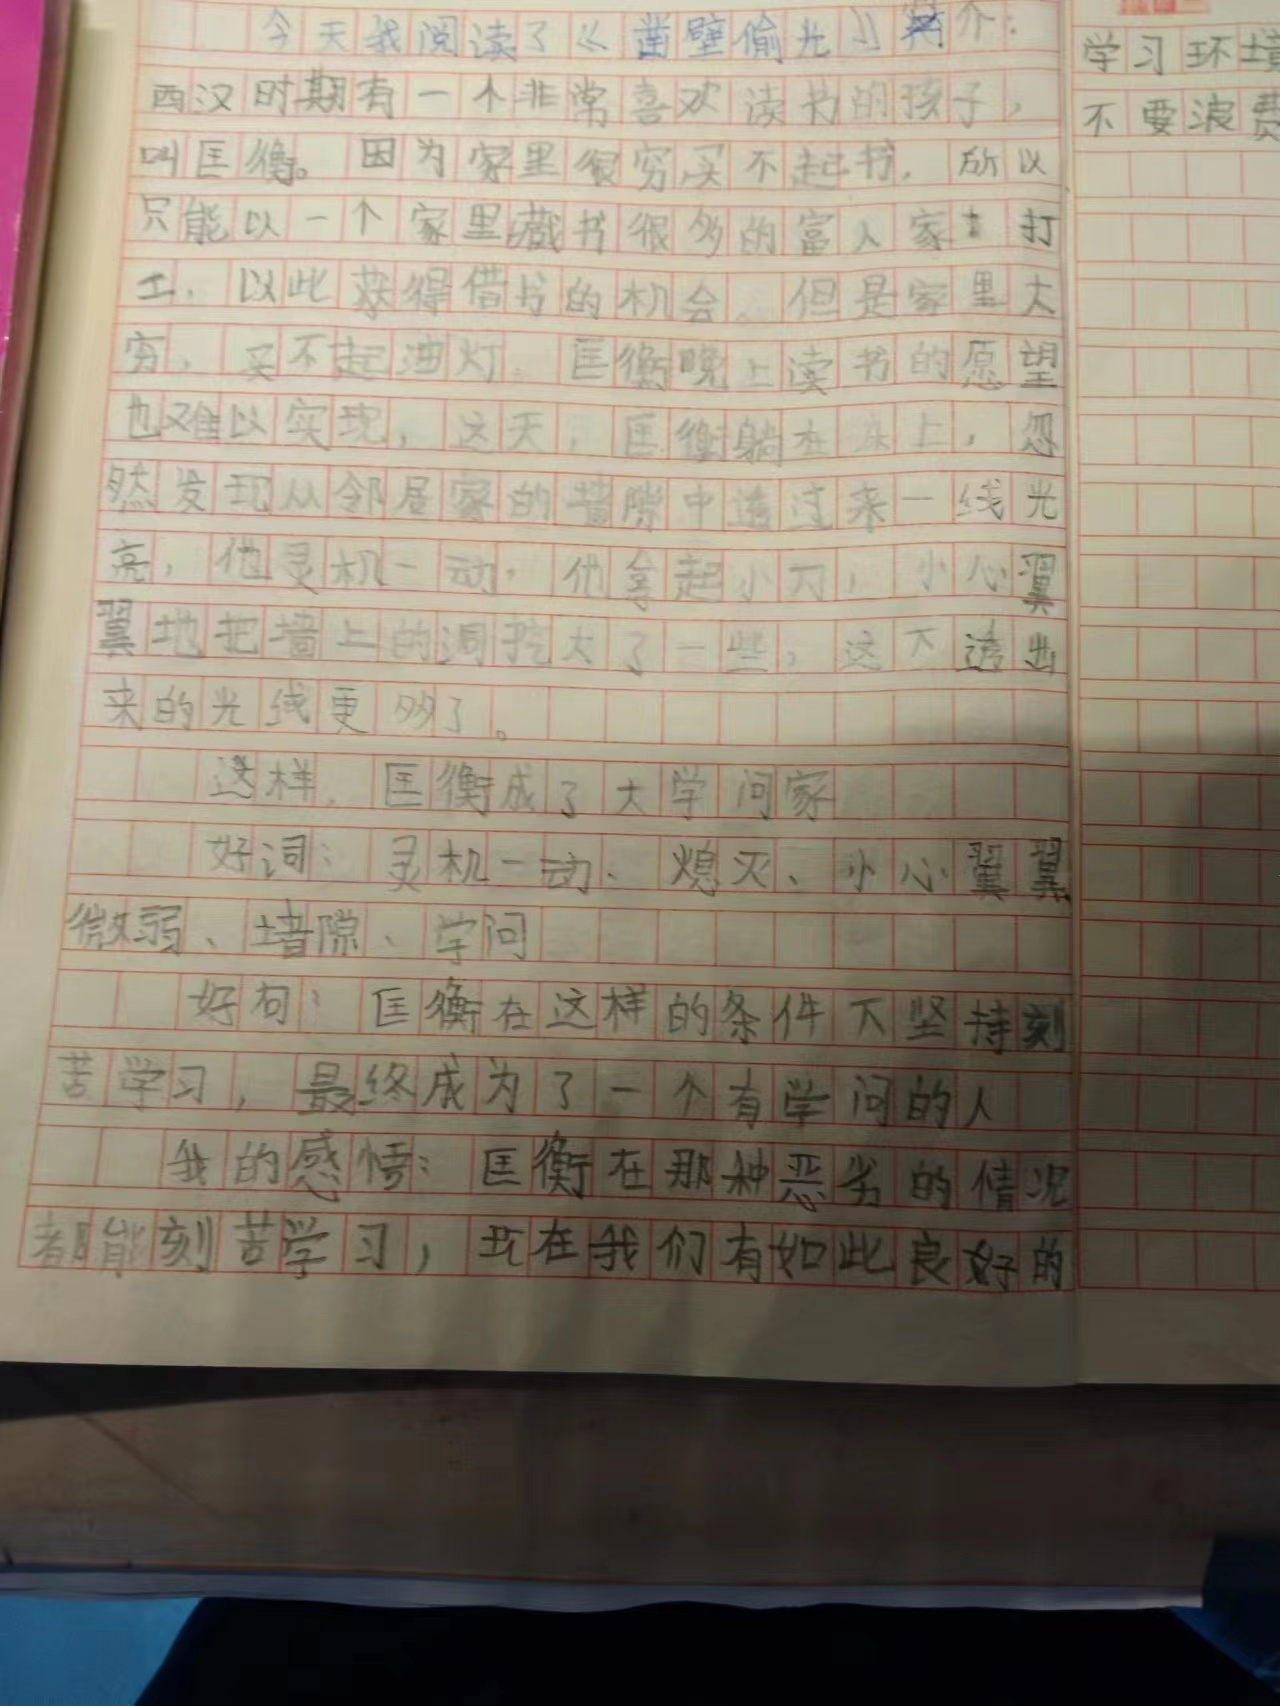 今天我阅读了《凿壁偷光》简介：
西汉时期有一个非常喜欢读书的孩子，
叫匡衡。因为家里很穷买不起书，所以
只能以一个家里藏书很多的富人家打
工，以此获得借书的机会。但是家里太
穷，买不起油灯，匡衡晚上读书的愿望
也难以实现，这天，匡衡躺在床上，忽
然发现从邻居家的墙隙中透过来一线光
亮，他灵机一动，他拿起小刀，小心翼
翼地把墙上的洞挖大了一些，这下透出
来的光线更多了。
这样，匡衡成了大学问家
好词：灵机一动、熄灭、小心翼翼
微弱、墙隙、学问
好句：匡衡在这样的条件下坚持刻
苦学习，最终成为了一个有学问的人
我的感悟：匡衡在那种恶劣的情况
都能刻苦学习，现在我们有如此良好的
学习环境
不要浪费